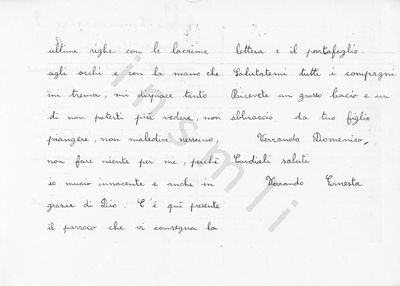 ultime righe con le lacrime
agli occhi e con la mano che
mi trema, mi dispiace tanto
di non poterti più vedere, non
piangere, non maledire nessuno,
non fare niente per me, perchè
io muoio innocente e anche in
grazia di Dio. C'è quì presente
il parroco che vi consegna la
lettera e il portafoglio.
Salutatemi tutti i compagni
Ricevete un grosso bacio e un
abbraccio da tuo figlio
Verrando Domenico,
Cordiali saluti
Verrando Ernesta
insmli